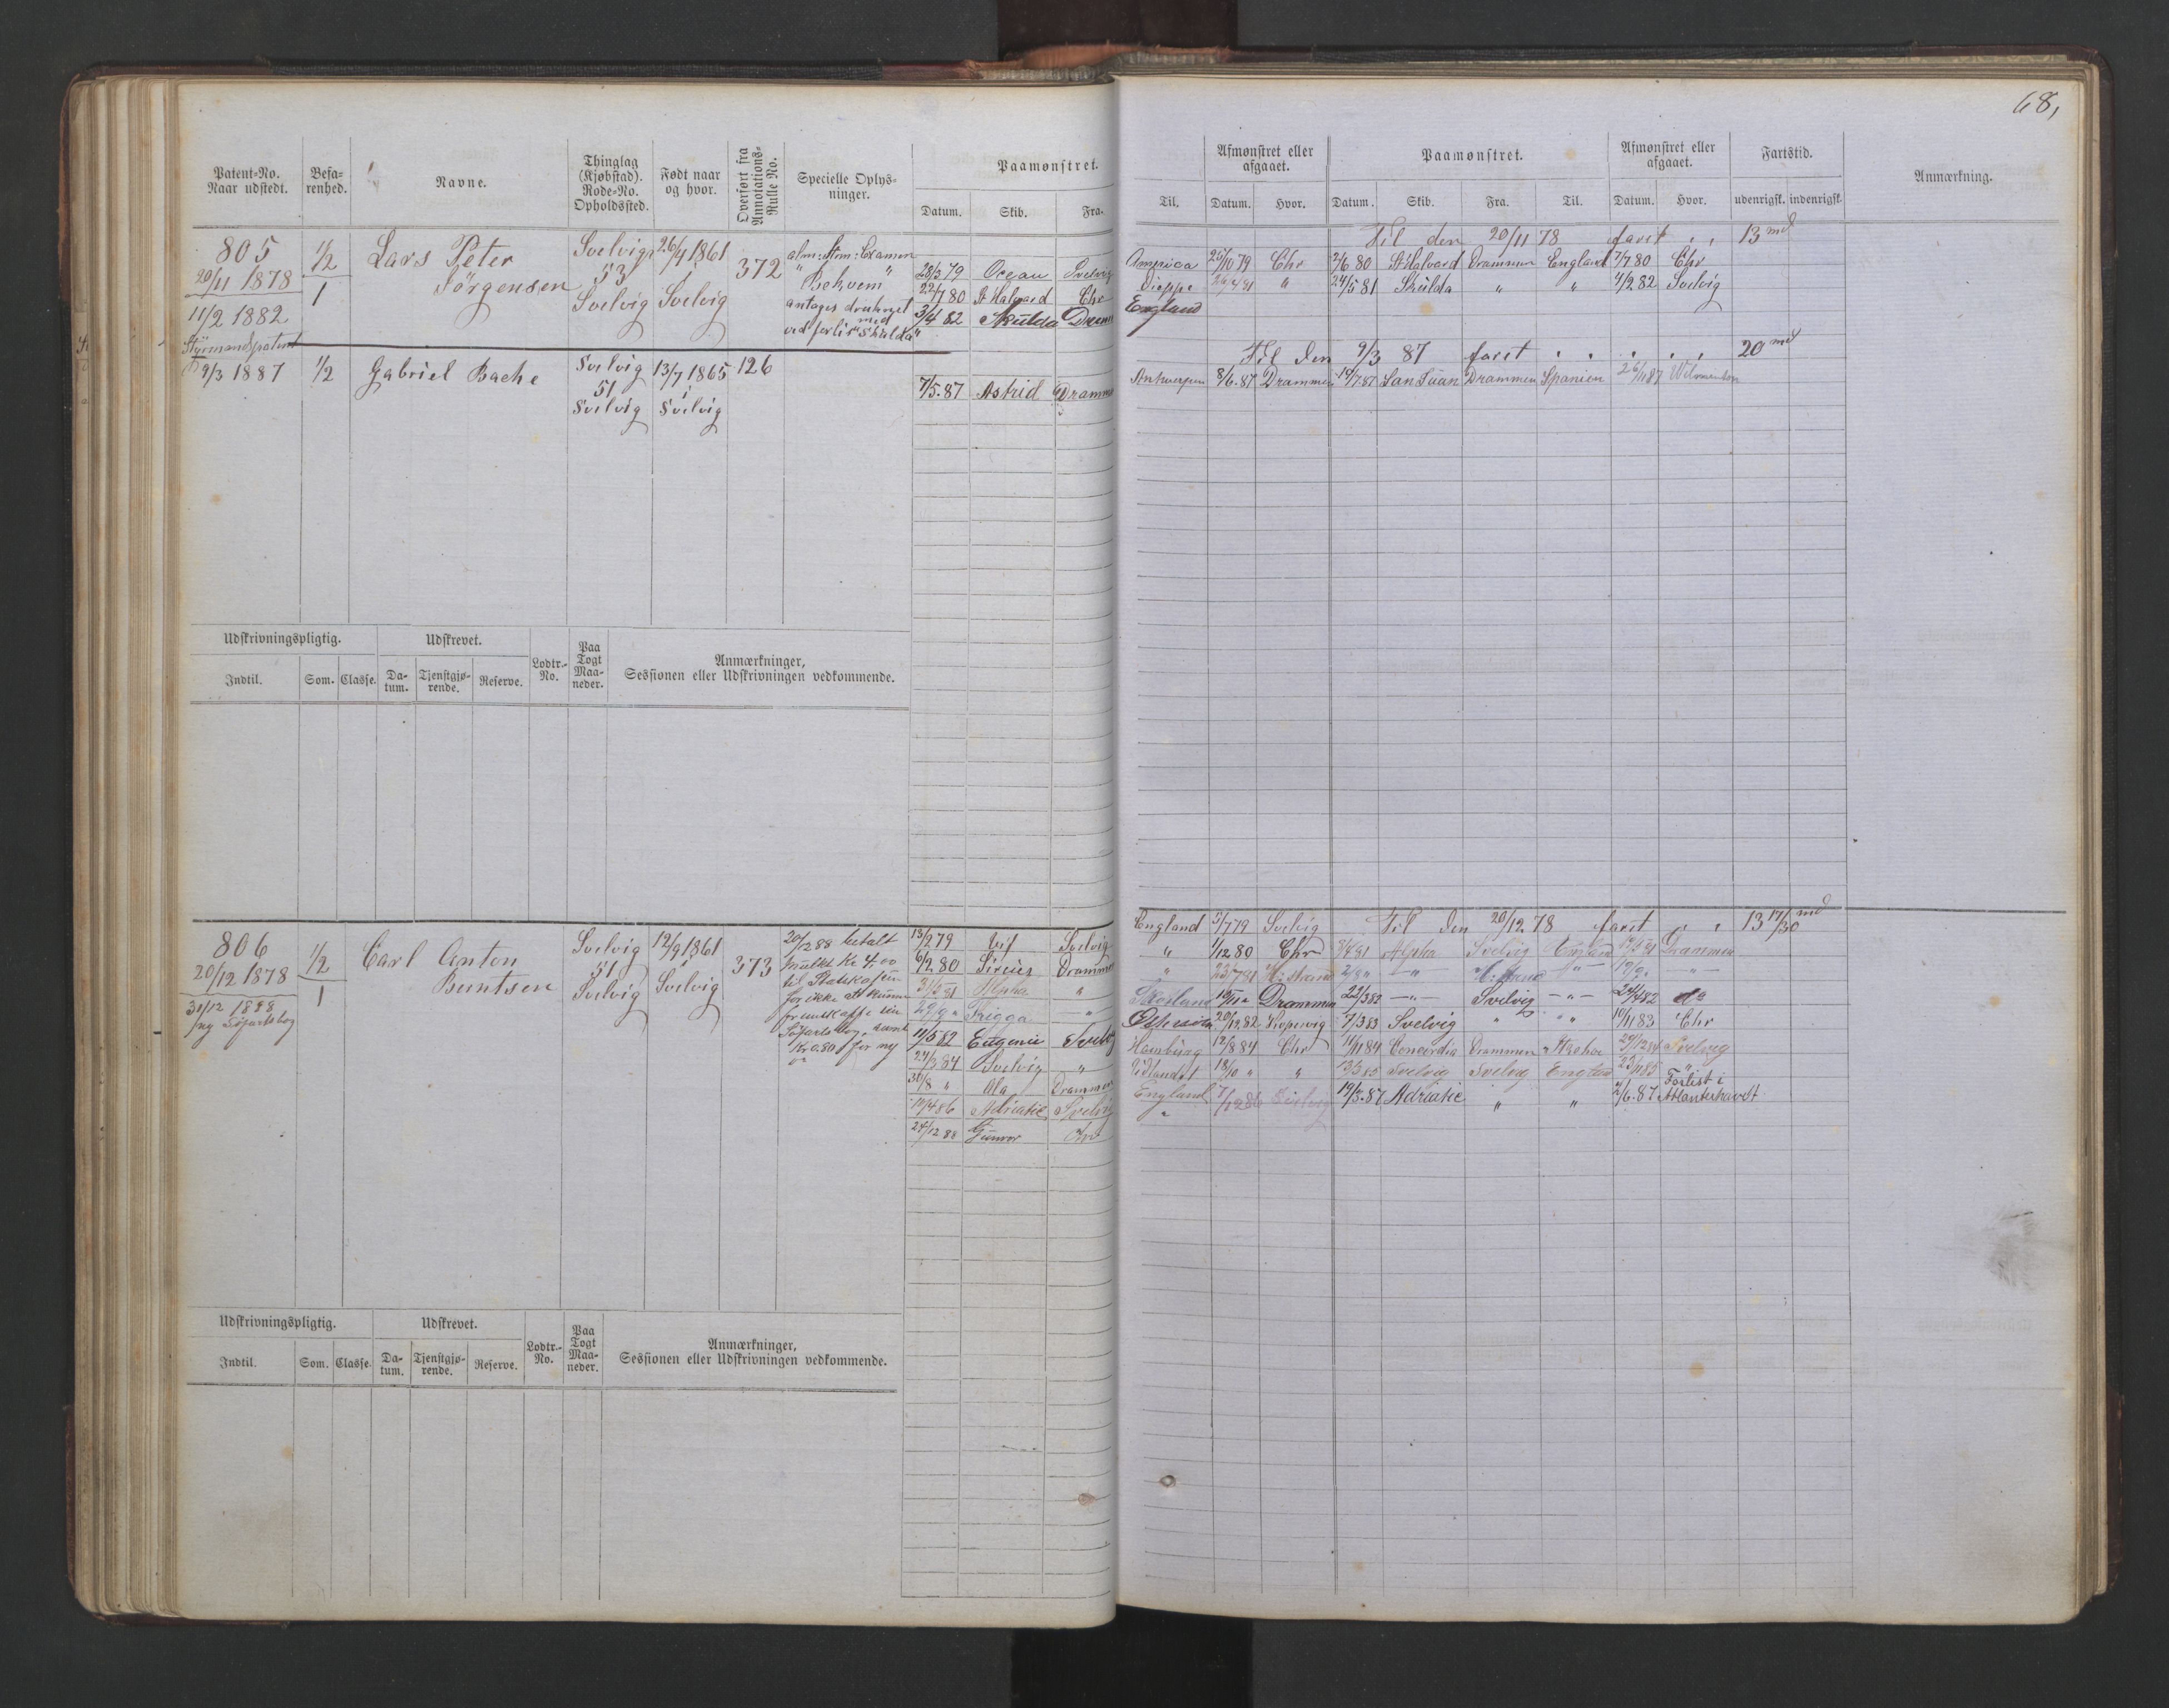 68,
Patent-No. Naar udstedt.
Befa-renhed.
Navne.
Thinglag (Kjøbstad). Rode-No. Opholdssted.
Født naar og hvor.
Overført fra Annotations-Rulle No.
Specielle Oplys-ninger.
Paamønstret.
Datum. Skib. Fra.
Til.
Afmønstret eller afgaaet.
Datum. Hvor.
Paamønstret.
Datum. Skib. Fra. Til.
Afmønstret eller afgaaet.
Datum. Hvor.
Fartstid.
udenrigsk. indenrigsk.
Anmærkning.
805
20/11 1878
11/2 1882
Styrmandspatent
9/3 1887
1/2
1
Lars Peter
Jörgensen
Svelvig
53
Svelvig
26/9 1861
Svelvig
372
alm: Stm: Examen
" Bekvem "
antages druknet
ved forlis med
"Skulda"
28/3 79 Ocean Svelvig
22/7 80 St Halvard Chr
3/4 82 Skulda Dramm
Til den 20/11 78 faret " " 13 md
America 25/10 79 Chr 2/6 80 St Halvard Drammen England 7/7 80 Chr
Dieppe 26/4 81 " 24/5 81 Skulda " " 4/2 82 Svelvig
England
1/2
Gabriel Bache
Svelvig
51
Svelvig
13/7 1865
Svelvig
126
7/5.87 Astrid Dramme
Til den 9/3 87 faret " " " " " 20 md
Antwerpen 8/6.87 Drammen 14/7.87 San Juan Drammen Spanien 26/11 87 Wilmington
Udskrivningspligtig.
Udskrevet.
Lodtr.-No.
Paa Togt Maa-neder.
Anmærkninger,
Sessionen eller Udskrivningen vedkommende.
Indtil. Som. Classe. Da-tum. Tjenstgjø-rende. Reserve.
806
20/12 1878
31/12 1888
ny Söfartsbog
1/2
1
Carl Anton
Berntsen
Svelvig
51
Svelvig
12/9 1861
Svelvig
373
20/12 88 betalt
Mulkt Kr 4.00
til Statskassen
for ikke at kunne
fremskaffe sin
Söfartsbog, samt
Kr 0.80 for ny
do
13/2 79 Vif Svelvig
6/2 80 Sirius Dramme
31/3 81 Alpha "
29/9 " Frigga "
11/5 82 Eugenie Svelvig
24/3 84 Svelvig "
30/8 " Ala Drammen
14/4 86 Adriatic Svelvig
24/12 88 Gunvor Chr
Til den 20/12 78 faret " " 13 17/30 md
England 5/7 79 Svelvig
" 1/12 80 Chr 3/4 81 Alpha Svelvig England 19/5 81 Drammen
" 23/7 81 2/8 " — " — — " — 19/9 " — " —
Skotland Drammen 22/3 82 — " — Svelvig — " — 24/4 82 do
20/12.82 Kopervig 7/3 83 Svelvig " " 10/11 83 Chr
Hamburg 12/8 84 Chr 11/11 84 Concordia Drammen 29/12 84 Svelvig
Udlandet 18/10 " " 13/3 85 Svelvig Svelvig England 23/11 85 "
England 7/12 86 Svelvig 19/3.87 Adriatic " " 2/6.87 Forlist i Atlanterhavet
"
Udskrivningspligtig.
Udskrevet.
Lodtr.-No.
Paa Togt Maa-neder.
Anmærkninger,
Sessionen eller Udskrivningen vedkommende.
Indtil. Som. Classe. Da-tum. Tjenstgjø-rende. Reserve.